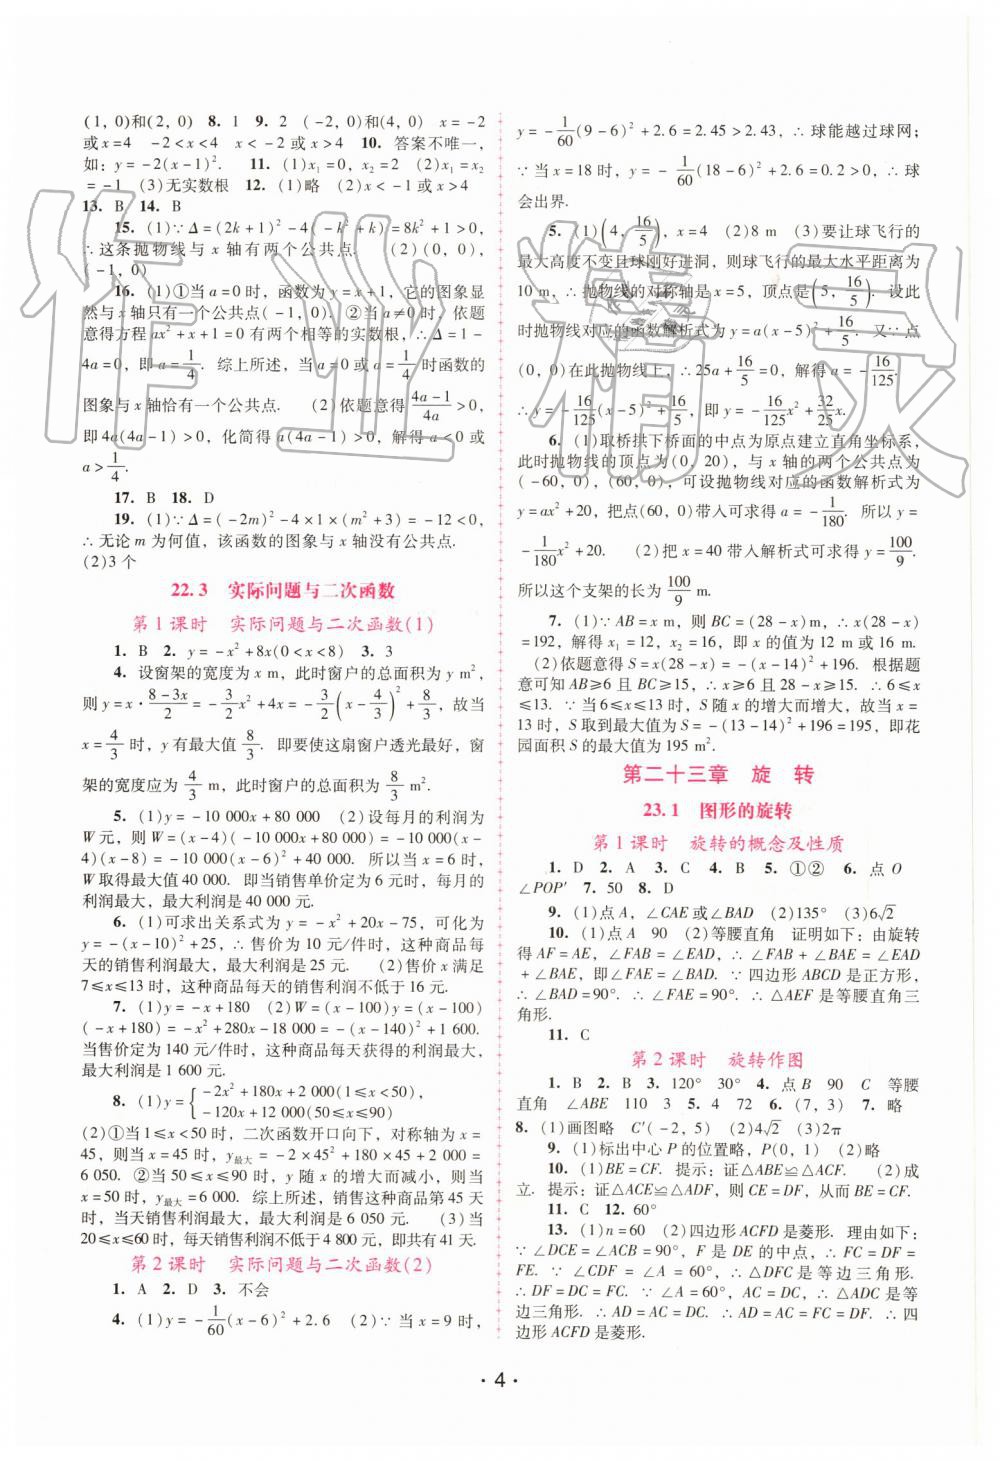 (1, 0)和(2, 0) 8. 1 9. 2 (-2, 0)和(4, 0) x=-2
或x=4 -2<x<4 x<-2或x>4 10. 答案不唯一,
如: y=-2(x-1)². 11. (1)x₁=0, x₂=2 (2)x₁=x₂
=-1 (3)无实数根 12. (1)略 (2)x<-1或x>4
13. B 14. B
15. (1)∵Δ=(2k+1)²-4(-k²+k)=8k²+1>0,
∴这条抛物线与x轴有两个公共点. (2)(0, 0),
(-1, 0)
16. (1)①当a=0时, 函数为y=x+1, 它的图象显
然与x轴只有一个公共点(-1, 0). ②当a≠0时, 依题
意得方程ax²+x+1=0有两个相等的实数根, ∴Δ=1-
4a=0, 即a=1/4. 综上所述, 当a=0或a=1/4时函数的
图象与x轴恰有一个公共点. (2)依题意得(4a-1)/4a>0,
即4a(4a-1)>0, 化简得a(4a-1)>0, 解得a<0或
a>1/4.
17. B 18. D
19. (1)∵Δ=(-2m)²-4×1×(m²+3)=-12<0,
∴无论m为何值, 该函数的图象与x轴没有公共点.
(2)3个
22.3 实际问题与二次函数
第1课时 实际问题与二次函数(1)
1. B 2. y=-x²+8x(0<x<8) 3. 3
4. 设窗架的宽度为x m, 此时窗户的总面积为y m²,
则y=x·(8-3x)/2=-3/2x²+4x=-3/2(x-4/3)²+8/3, 故当
x=4/3时, y有最大值8/3. 即要使这扇窗户透光最好, 窗
架的宽度应为4/3 m, 此时窗户的总面积为8/3 m².
5. (1)y=-10 000x+80 000 (2)设每月的利润为
W元, 则W=(x-4)(-10 000x+80 000)=-10 000(x-
4)(x-8)=-10 000(x-6)²+40 000. 所以当x=6时,
W取得最大值40 000. 即当销售单价定为6元时, 每月的
利润最大, 最大利润是40 000元.
6. (1)可求出关系式为y=-x²+20x-75, 可化为
y=-(x-10)²+25, ∴售价为10元/件时, 这种商品每
天的销售利润最大, 最大利润是25元. (2)售价x满足
7≤x≤13时, 这种商品每天的销售利润不低于16元.
7. (1)y=-x+180 (2)W=(x-100)y=(x-100)
(-x+180)=-x²+280x-18 000=-(x-140)²+1 600.
当售价定为140元/件时, 这种商品每天获得的利润最大,
最大利润是1 600元.
8. (1)y={-2x²+180x+2 000(1≤x<50),
-120x+12 000(50≤x≤90)
(2)①当1≤x<50时, 二次函数开口向下, 对称轴为x=
45, 则当x=45时, y最大=-2×45²+180×45+2 000=
6 050. ②当50≤x≤90时, y随x的增大而减小, 则当
x=50时, y最大=6 000. 综上所述, 销售这种商品第45天
时, 当天销售利润最大, 最大利润是6 050元. (3)当
20≤x≤60时, 每天销售利润不低于4 800元, 即共有41天.
第2课时 实际问题与二次函数(2)
1. A 2. D 3. 不会
4. (1)y=-1/60(x-6)²+2.6 (2)∵当x=9时,
y=-1/60(9-6)²+2.6=2.45>2.43, ∴球能越过球网;
∵当x=18时, y=-1/60(18-6)²+2.6=0.2>0, ∴球
会出界.
5. (1)(4, 16/5), x=4 (2)8 m (3)要让球飞行的
最大高度不变且球刚好进洞, 则球飞行的最大水平距离为
10 m, ∴抛物线的对称轴是x=5, 顶点是(5, 16/5). 设此
时抛物线对应的函数解析式为y=a(x-5)²+16/5. 又∵点
(0, 0)在此抛物线上, ∴25a+16/5=0, 解得a=-16/125.
∴y=-16/125(x-5)²+16/5, 即y=-16/125x²+32/25x.
6. (1)取桥拱下桥面的中点为原点建立直角坐标系,
此时抛物线的顶点为(0, 20), 与x轴的两个公共点为
(-60, 0), (60, 0), 可设抛物线对应的函数解析式为
y=ax²+20, 把点(60, 0)带入可求得a=-1/180. 所以y=
-1/180x²+20. (2)把x=40带入解析式可求得y=100/9.
所以这个支架的长为100/9 m.
7. (1)∵AB=x m, 则BC=(28-x)m, ∴x(28-x)
=192, 解得x₁=12, x₂=16, 即x的值为12 m或16 m.
(2)依题意得S=x(28-x)=-(x-14)²+196. 根据题
意可知AB≥6且BC≥15, ∴x≥6且28-x≥15. ∴6≤x
≤13. ∵当6≤x≤13时, S随x的增大而增大, 故当x=
13时, S取到最大值为S=-(13-14)²+196=195, 即花
园面积S的最大值为195 m².
第二十三章 旋 转
23.1 图形的旋转
第1课时 旋转的概念及性质
1. D 2. A 3. C 4. B 5. ①② 6. 点O
∠POP′ 7. 50 8. D
9. (1)点A, ∠CAE或∠BAD (2)135° (3)6√2
10. (1)点A 90 (2)等腰直角 证明如下: 由旋转
得AF=AE, ∠FAB=∠EAD, ∴∠FAB+∠BAE=∠EAD
+∠BAE, 即∠FAE=∠BAD. ∵四边形ABCD是正方形,
∴∠BAD=90°. ∴∠FAE=90°. ∴△AEF是等腰直角三
角形.
11. C
第2课时 旋转作图
1. B 2. B 3. 120° 30° 4. 点B 90 C 等腰
直角 ∠ABE 110 3 5. 4 72 6. (7, 3) 7. 略
8. (1)画图略 C′(-2, 5) (2)4√2 (3)2π
9. (1)标出中心P的位置略, P(0, 1) (2)略
10. (1)BE=CF. 提示: 证△ABE≌△ACF. (2)成
立. 提示: 证△ACE≌△ADF, 则CE=DF, 从而BE=CF.
11. C 12. 60°
13. (1)n=60 (2)四边形ACFD是菱形. 理由如下:
∵∠DCE=∠ACB=90°, F是DE的中点, ∴FC=DF=
FE. ∵∠CDF=∠A=60°, ∴△DFC是等边三角形.
∴DF=DC=FC. ∵∠A=60°, AC=DC, ∴△ADC是等
边三角形. ∴AD=AC=DC. ∴AD=AC=FC=DF. ∴四
边形ACFD是菱形.
·4·
作业精灵